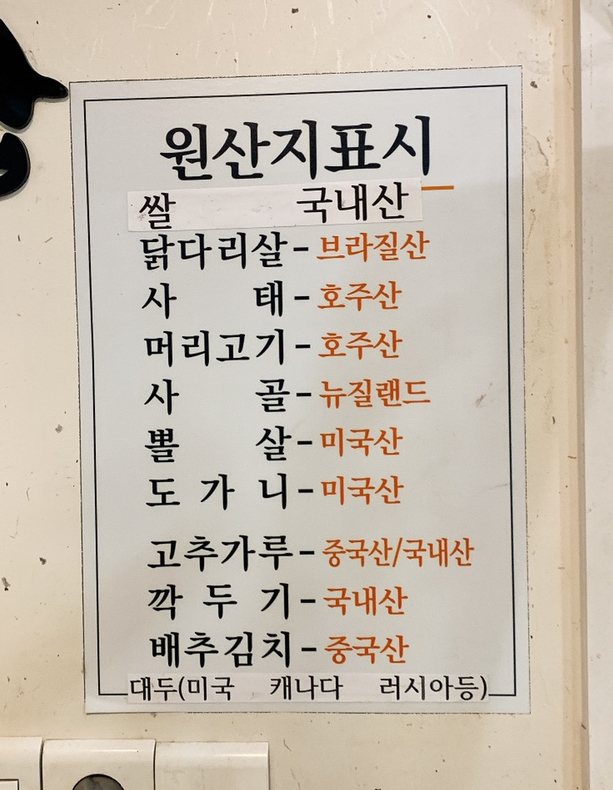 원산지표시
쌀 국내산
닭다리살-브라질산
사 태-호주산
머리고기-호주산
사 골-뉴질랜드
뽈 살-미국산
도 가 니-미국산
고추가루-중국산/국내산
깍 두 기-국내산
배추김치-중국산
대두(미국 캐나다 러시아등)